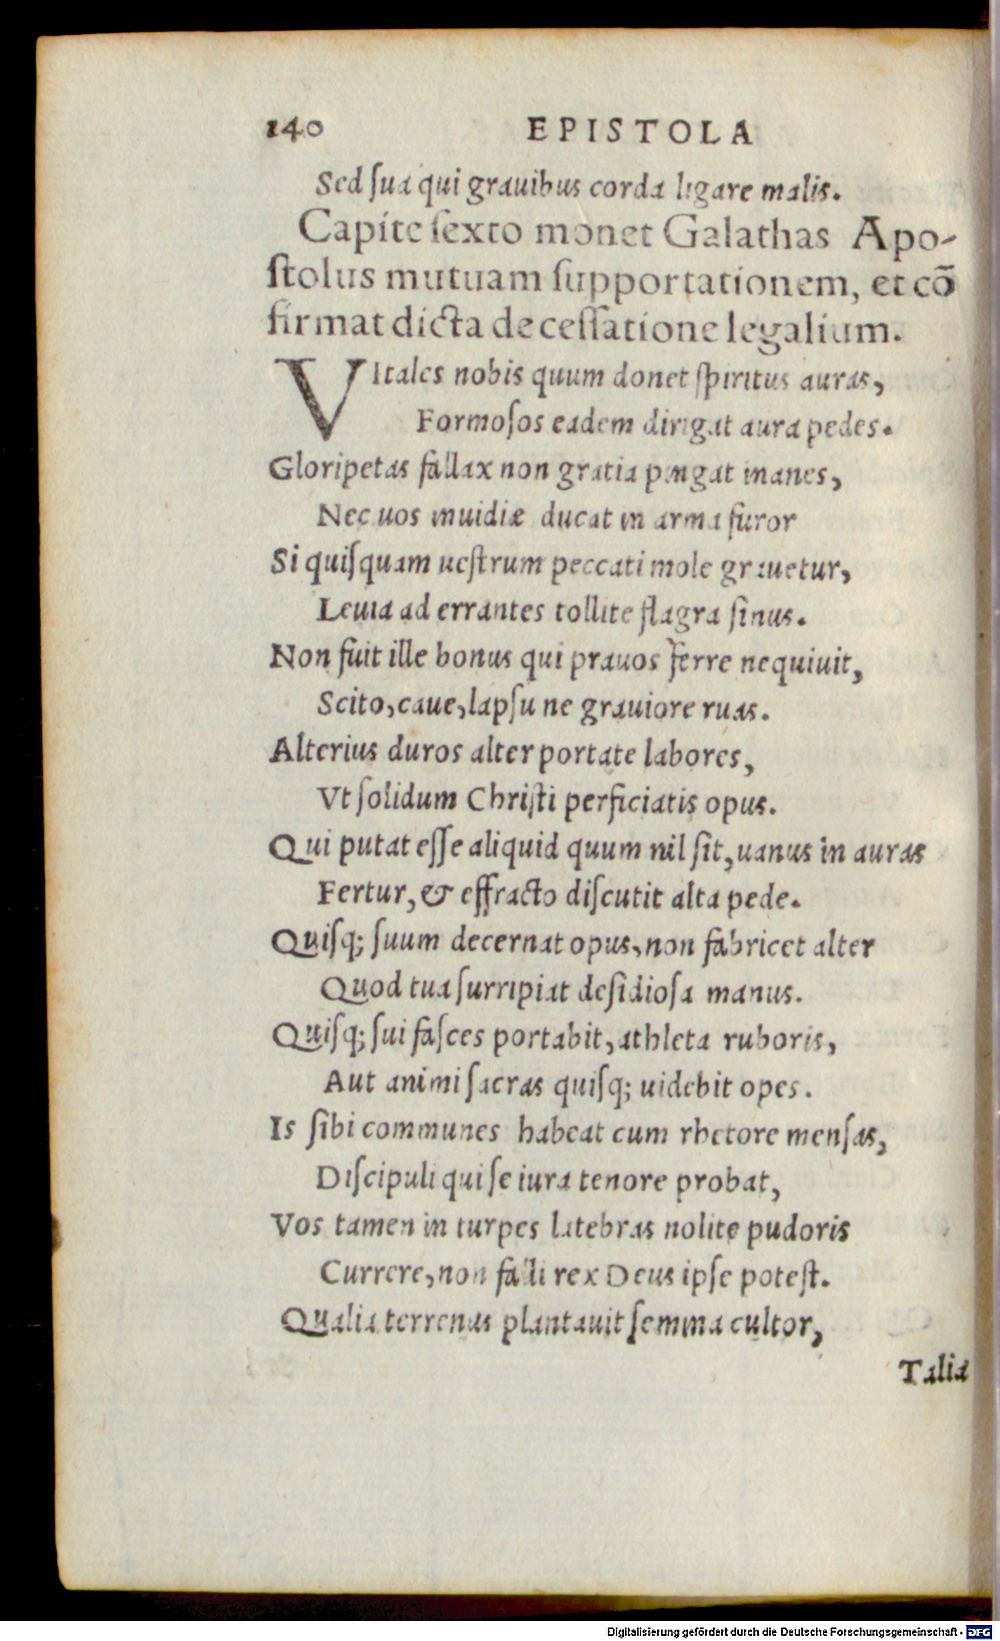 140 EPISTOLA
Sed ſua qui grauibus corda ligare malis.
Capite ſexto monet Galathas Apo-
ſtolus mutuam ſupportationem, et cō
firmat dicta de ceſſatione legalium.
VItales nobis quum donet ſpiritus auras,
Formoſos eadem dirigat aura pedes.
Gloripetas fallax non gratia pingat inanes,
Nec uos inuidiæ ducat in arma furor
Si quiſquam ueſtrum peccati mole grauetur,
Leuia ad errantes tollite flagra ſinus.
Non fuit ille bonus qui prauos ferre nequiuit,
Scito, caue, lapſu ne grauiore ruas.
Alterius duros alter portate labores,
Vt ſolidum Chriſti perficiatis opus.
Qui putat eſſe aliquid quum nil ſit, uanus in auras
Fertur, & effracto diſcutit alta pede.
Quiſq; ſuum decernat opus, non fabricet alter
Quod tua ſurripiat deſidioſa manus.
Quiſq; ſui faſces portabit, athleta ruboris,
Aut animi ſacras quiſq; uidebit opes.
Is ſibi communes habeat cum rhetore menſas,
Diſcipuli qui ſe iura tenore probat,
Vos tamen in turpes latebras nolite pudoris
Currere, non falli rex Deus ipſe poteſt.
Qualia terrenas plantauit ſemina cultor,
Talia
Digitalisierung gefördert durch die Deutsche Forschungsgemeinschaft - DFG